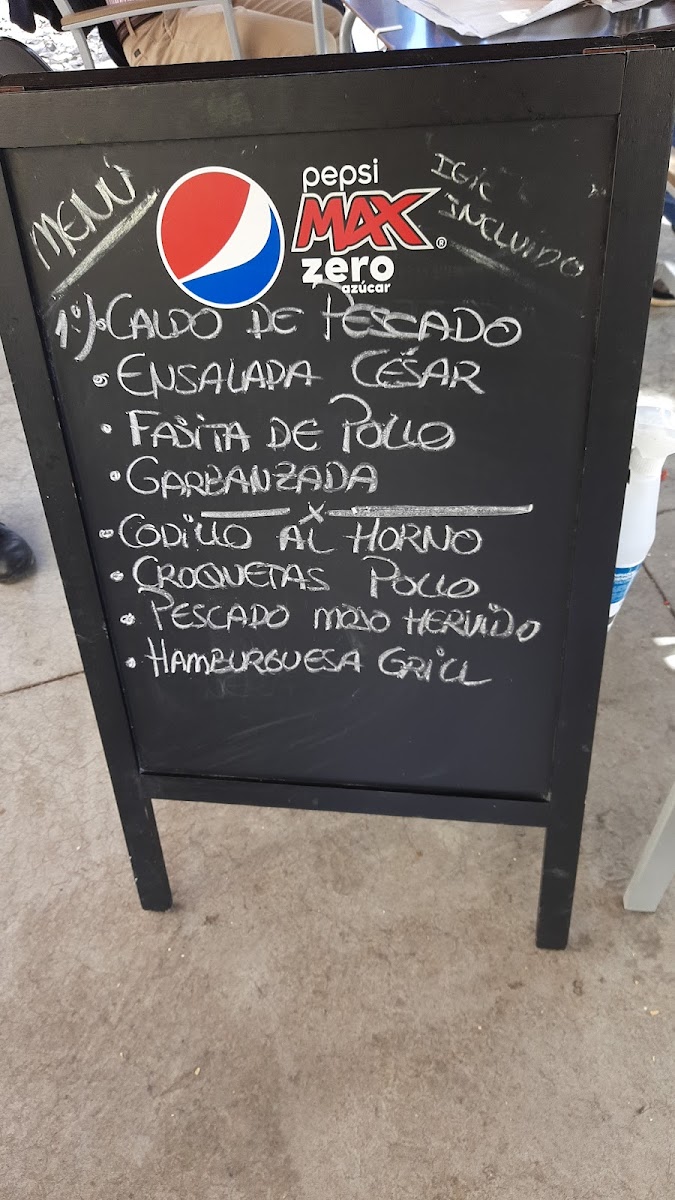 MENÚ
pepsi
MAX®
zero
azúcar
IGIC
INCLUIDO
1º/. CALDO DE PESCADO
• ENSALADA CÉSAR
• FAJITA DE POLLO
• GARBANZADA
x
• CODILLO AL HORNO
• CROQUETAS POLLO
• PESCADO MOJO HERVIDO
• HAMBURGUESA GRILL